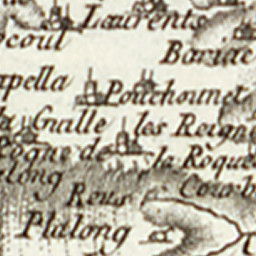 Laurents
ocoul
Bariac
apella
Pouchounet
Gualle les Reigne
Rogne de la Ròque
long
Reus
Plalong